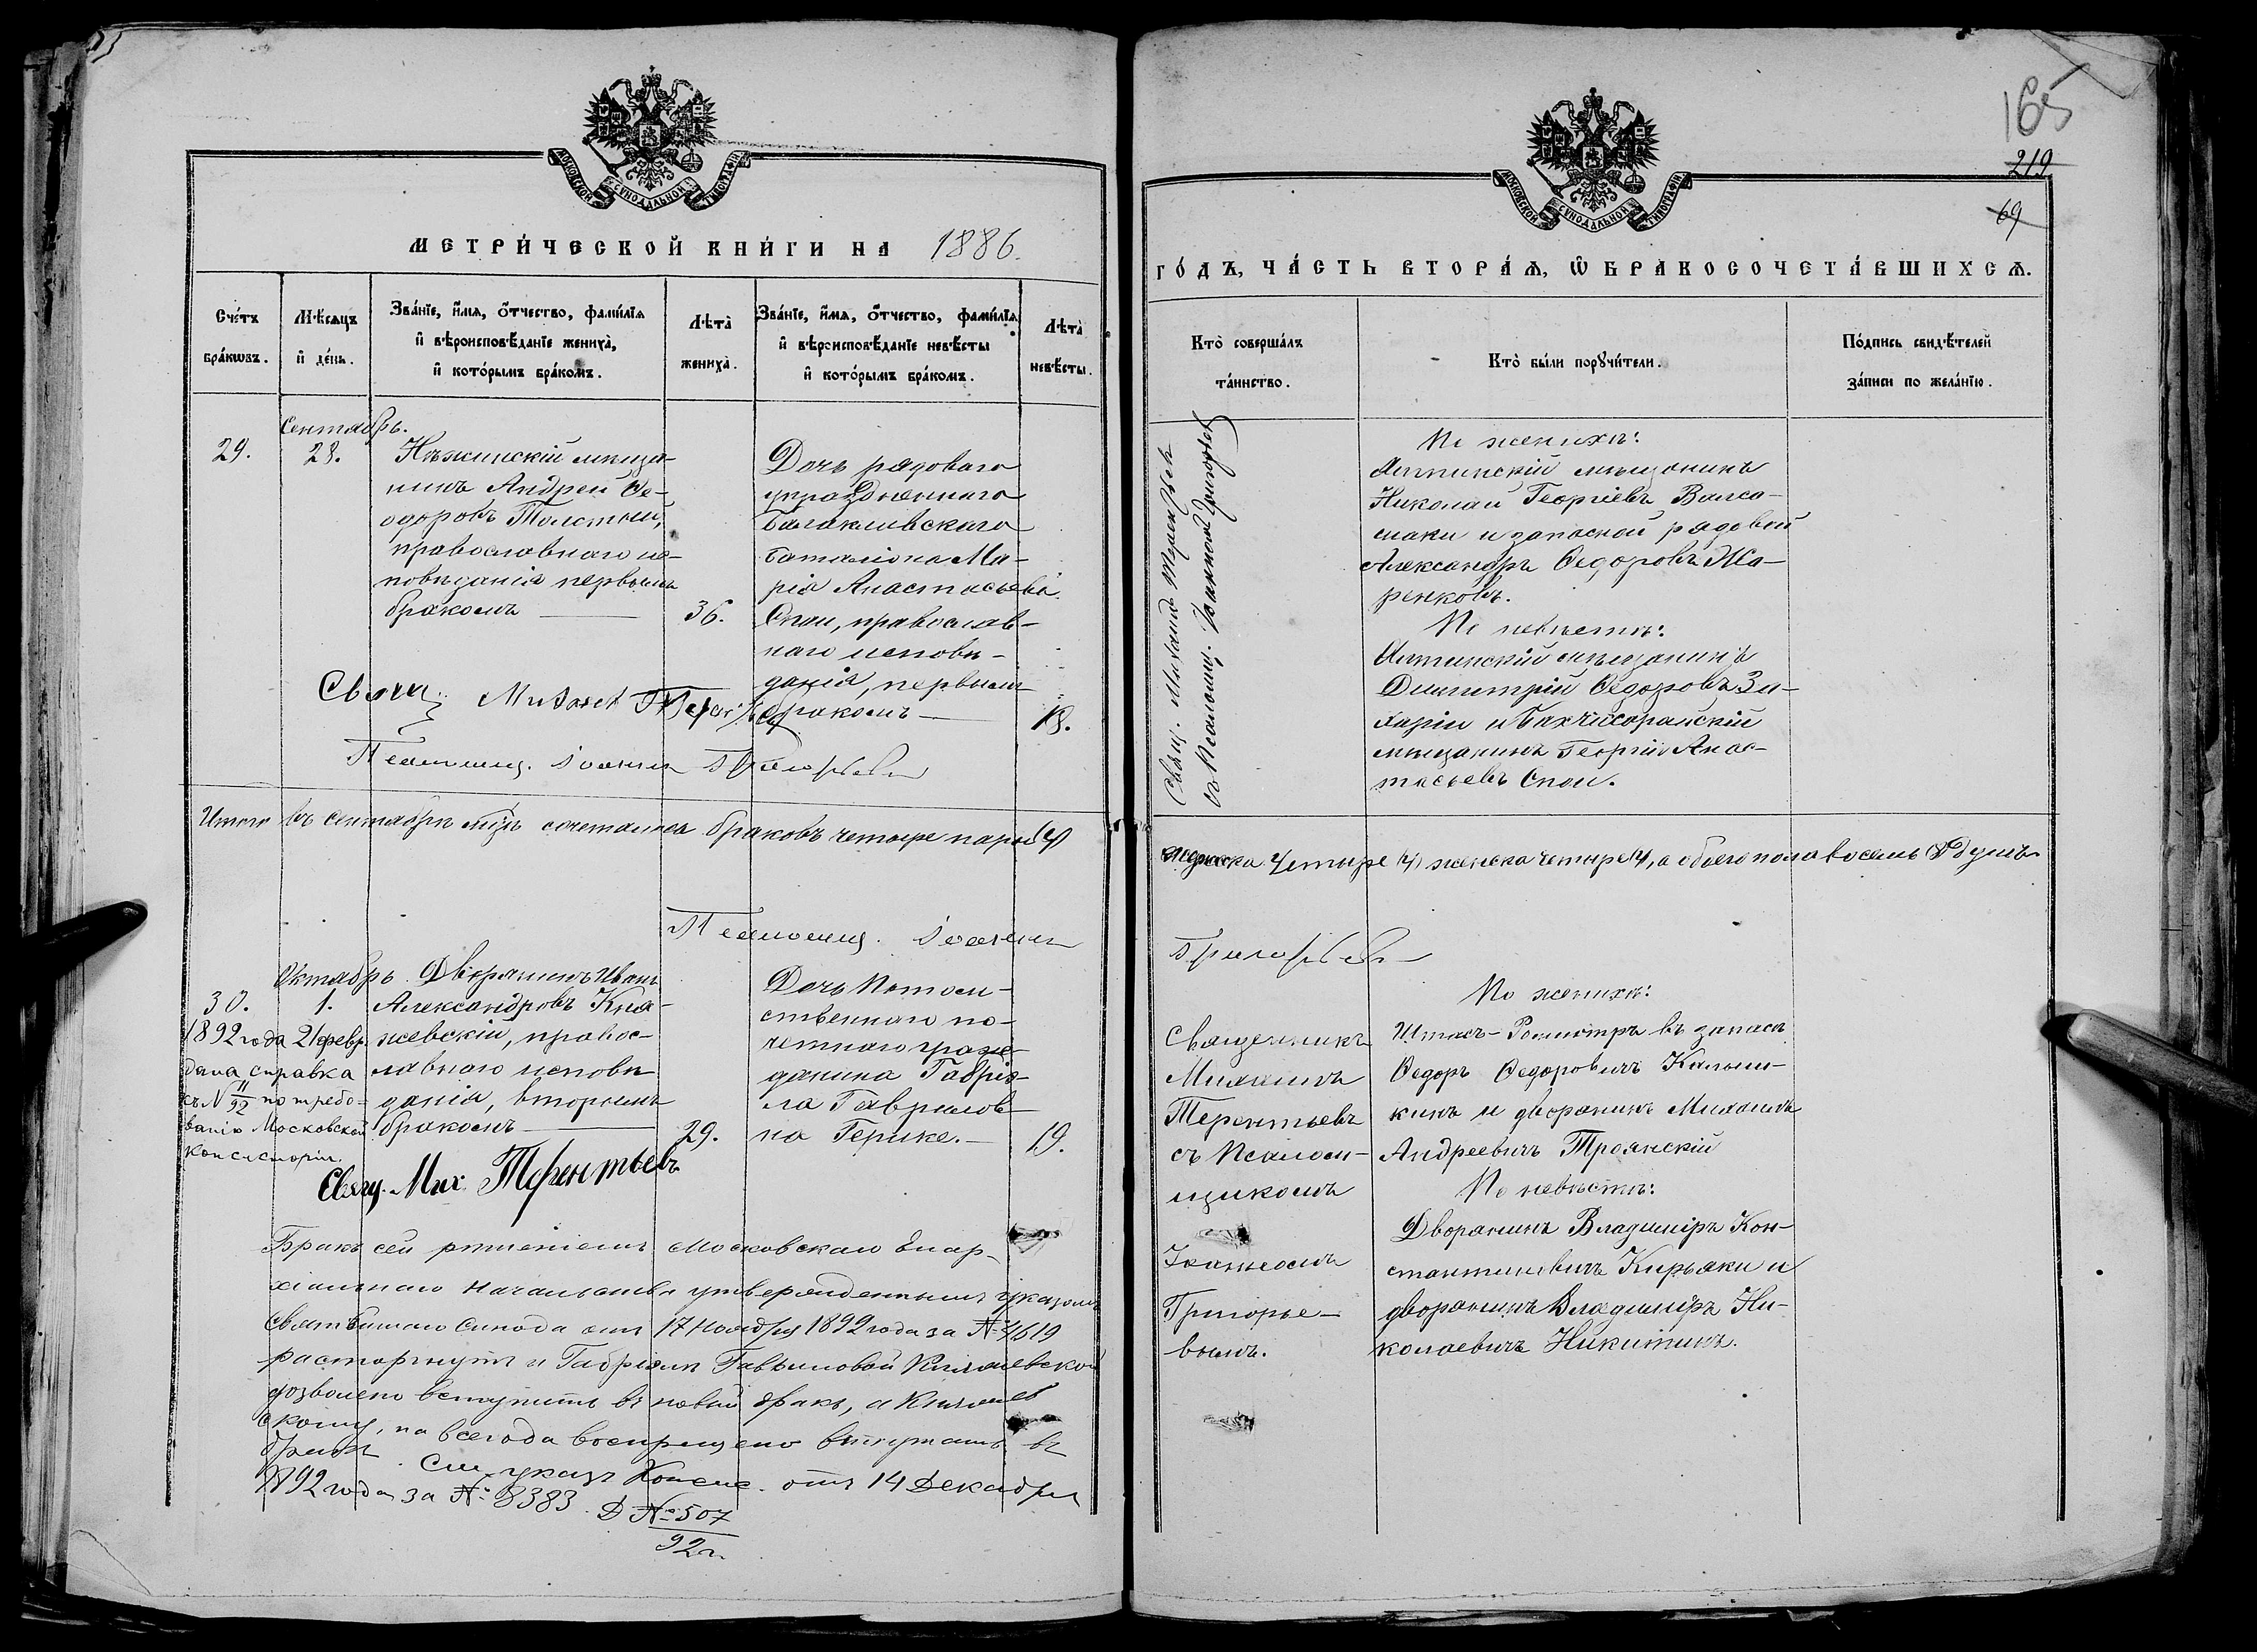 165
219
69
МОСКОВСКОЙ СѴНОДАЛЬНОЙ ТИПОГРАФІИ
МЕТРИ́ЧЕСКОЙ КНИ́ГИ НА 1886.
Сче́тъ бра́кѡвъ.
Мѣ́сяцъ и҆ де́нь.
Зва́нїе, и҆́мѧ, ѻ҆́тчество, фами́лїѧ и҆ вѣроисповѣ́данїе жениха̀, и҆ кото́рымъ бра́комъ.
Лѣта̀ жениха̀.
Зва́нїе, и҆́мѧ, ѻ҆́тчество, фами́лїѧ и҆ вѣроисповѣ́данїе невѣ́сты и҆ кото́рымъ бра́комъ.
Лѣта̀ невѣ́сты.
29.
Сентябрь.
28.
Нѣжинскій мѣща-
нинъ Андрей Ѳе-
одоровъ Толстый,
православнаго ис-
повѣданія первымъ
бракомъ
36.
Дочь рядоваго
упраздненнаго
Балаклавскаго
баталіона Ма-
рія Анастасьева
Спаи, православ-
наго исповѣ-
данія, первымъ
бракомъ
18.
Свящ. Михаилъ Терентьевъ
Псаломщ. Іоаннъ Григорьевъ
Итого въ сентябрѣ мцѣ сочеталися браковъ четыре пары (4)
Псаломщ. Іоаннъ
30.
Октябрь
1.
1892 года 21 февр.
дана справка
къ N 11/92 по требо-
ванію Московской
Консисторіи.
Дворянинъ Иванъ
Александровъ Кня-
жевскій, правос-
лавнаго исповѣ-
данія, вторымъ
бракомъ
29.
Дочь Потом-
ственнаго по-
четнаго граж-
данина Габріэ-
ла Гавриилов-
на Герике.
19.
Свящ. Мих. Терентьевъ
Бракъ сей рѣшеніемъ Московскаго Епар-
хіальнаго Начальства утвержденнымъ указомъ
Святѣйшаго Синода отъ 17 Ноября 1892 года за № 4619
расторгнутъ и Габріэлѣ Гавриловой Княжевской
дозволено вступить въ новый бракъ, а Княжев
скому, на всегда воспрещено вступать въ
бракъ. См. указъ Консис. отъ 14 Декабря
1892 года за № 8383. Д № 507
92 г.
МОСКОВСКОЙ СѴНОДАЛЬНОЙ ТИПОГРАФІИ
ГО́ДЪ, ЧА́СТЬ ВТОРА́Ѧ, Ѡ҆ БРАКОСОЧЕТА́ВШИХСѦ.
Кто̀ соверша́лъ та́инство.
Кто̀ бы́ли порꙋчи́тели.
По́дпись свидѣ́телей за́писи по жела́нїю.
Свящ. Михаилъ Терентьевъ
съ Псаломщ. Іоанномъ Григорьев
По женихѣ:
Ялтинскій мѣщанинъ
Николай Георгіевъ Валса-
маки и запасной рядовой
Александръ Ѳедоровъ Жа-
ренковъ.
По невѣстѣ:
Ялтинскій мѣщанинъ
Димитрій Ѳедоровъ За-
харіи и Бахчисарайскій
мѣщанинъ Георгій Анас-
тасьевъ Спаи.
мужеска четыре (4) женска четыре (4), а обоего пола восемь (8) душъ
Григорьевъ
Священникъ
Михаилъ
Терентьевъ
съ Псалом-
щикомъ
Іоанномъ
Григорье-
вымъ.
По женихѣ:
Штабъ-Ротмистръ въ запасѣ
Ѳедоръ Ѳедоровичъ Калаш-
кинъ и дворянинъ Михаилъ
Андреевичъ Троянскій
По невѣстѣ:
Дворянинъ Владиміръ Кон-
стантиновичъ Кирьяки и
дворянинъ Владиміръ Ни-
колаевичъ Никитинъ.